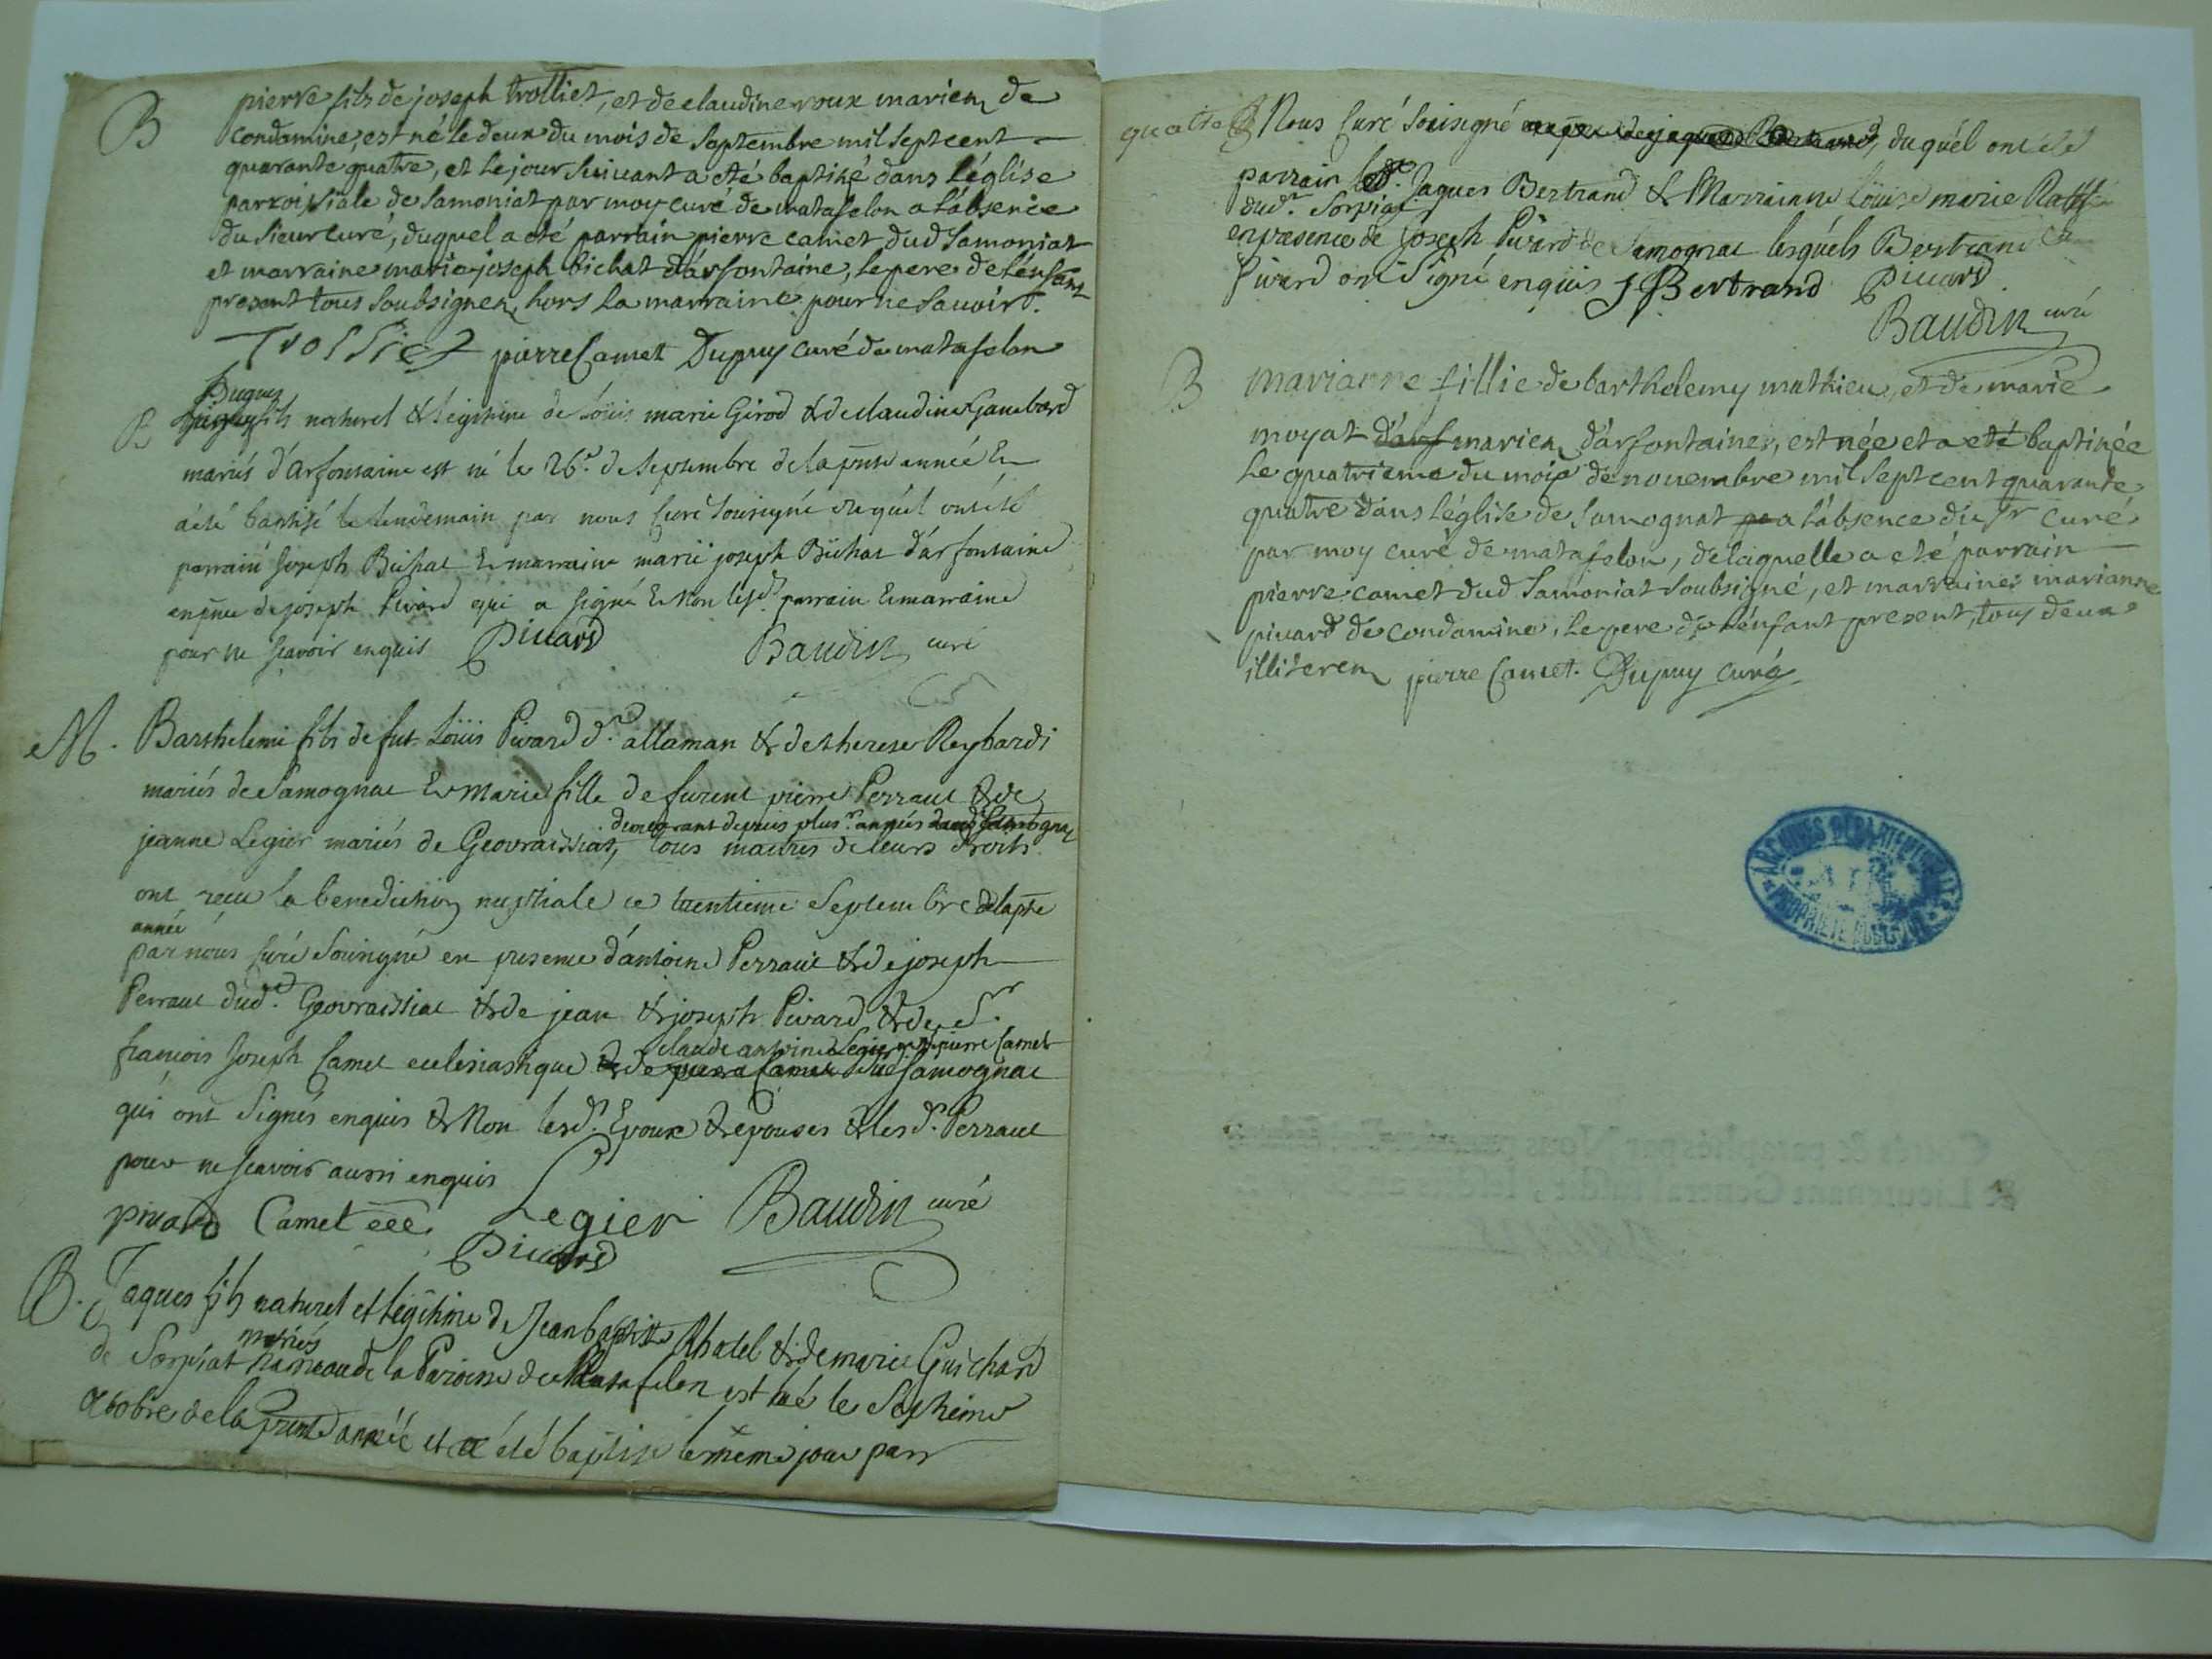 B
pierre fils de joseph trolliet, et de claudine roux mariez de
Condamine, est né le deux du mois de Septembre mil sept cent
quarante quatre, et le jour suivant a eté baptisé dans l'église
parroissiale de Samoniat par moy curé de matafelon a l'absence
du sieur curé, duquel a eté parrain pierre camet dud Samoniat
et marraine marie joseph bichat d'arfontaine, le pere de l'enfant
present tous soubsignez, hors la marraine pour ne savoir.
Trolliet pierre Camet Dupuy curé de matafelon
Hugues
B
fils naturel & légitime de Loüis marie Girod & de claudine Gambard
mariés d'arfontaine est né le 26e. de Septembre de la pnte année Et
a été baptisé le lendemain par nous Curé Sousigné duquél ont été
parrain Joseph Bichat Et marraine marie joseph Bichat d'arfontaine
en pnce de joseph Pivard qui a signé Et Non lesd. parrain Et marraine
pour ne scavoir enquis Pivard Baudin curé
M.
Barthelemi fils de fut Loüis Pivard d. allaman & de therese Reybard
mariés de Samognat Et Marie fille de furent pierre Perraut & de
demeurant depuis plusr. années
jeanne Legier mariés de Geovraissiat, tous maitres de leurs droits
ont reçu la benediction nuptiale ce trentieme Septembre de la pnte
année
par nous Curé Sousigné en presence d'antoine Perraut & de joseph
Perraut dud. Geovraissiat & de jean & joseph Pivard & de Sr.
claude antoine Legier & pierre Camet
françois Joseph Camet eclesiastique & de pierre Camet dud Samognat
qui ont Signés enquis & Non lesd. Epoux & epouses & lesd. Perraut
pour ne scavoir aussi enquis
pivard Camet ecc. Legier Baudin curé
Pivard
B.
Jaques fils naturel et légitime de Jean baptiste Chatel & de marie Guichard
mariés
de Sorpiat hameau de la Paroisse de Matafelon est né le Septieme
octobre de la pnte année et a été baptisé le même jour par
quatre
Nous Curé Sousigné en pnce de jaques Bertrand, duquél ont été
parrain led. Jaques Bertrand & Marrainne Loüise marie
dud. Sorpiat
en presence de joseph Pivard de Samognat lesquéls Bertrand
Pivard ont Signé enquis J Bertrand Pivard
Baudin curé
B
marianne fillie de barthelemy mathieu, et de marie
moyat d'arf mariez d'arfontaine, est née et a eté baptisée
Le quatrieme du mois de novembre mil sept cent quarante
quatre dans l'église de Samognat pa a l'absence du Sr curé
par moy curé de matafelon, de laquelle a eté parrain
pierre camet dud Samoniat soubsigné, et marraine marianne
pivard de condamine, le pere de l'enfant present, tous deux
illiterez pierre Camet. Dupuy curé
ARCHIVES DEPARTEMENTALES
PROPRIETE PUBLIQUE